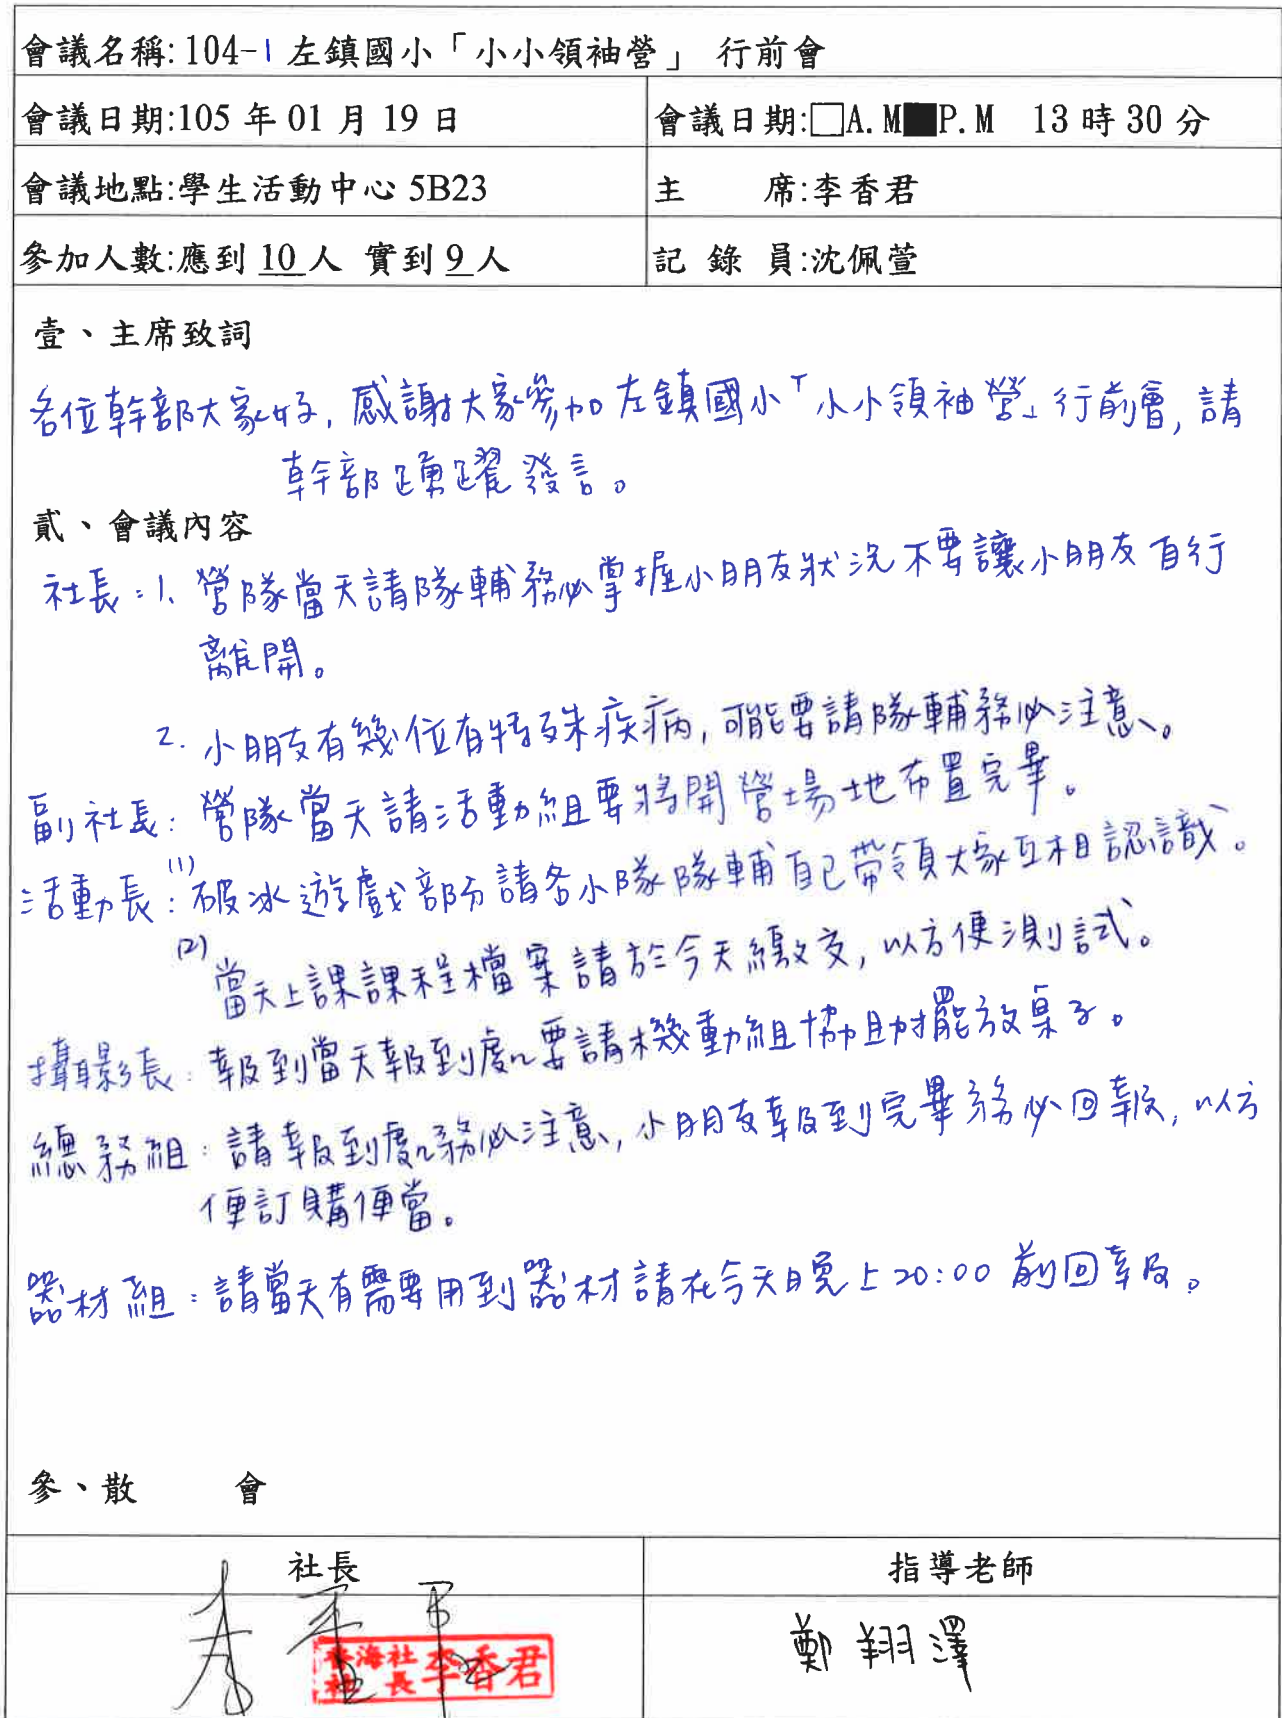 會議名稱:104-1 左鎮國小「小小領袖營」 行前會
會議日期:105 年 01 月 19 日 會議日期:□A.M■P.M 13 時 30 分
會議地點:學生活動中心 5B23 主 席:李香君
參加人數:應到 10 人 實到 9 人 記 錄 員:沈佩萱
壹、主席致詞
各位幹部大家好,感謝大家參加左鎮國小「小小領袖營」行前會,請
幹部踴躍發言。
貳、會議內容
社長:1、營隊當天請隊輔務必掌握小朋友狀況不要讓小朋友自行
離開。
2. 小朋友有幾位有特殊疾病,可能要請隊輔務必注意。
副社長:營隊當天請活動組要將開營場地布置完畢。
活動長:(1)破冰遊戲部分請各小隊隊輔自己帶領大家互相認識。
(2)當天上課課程檔案請於今天繳交,以方便測試。
攝影長:報到當天報到處要請機動組協助擺放桌子。
總務組:請報到處務必注意,小朋友報到完畢務必回報,以方
便訂購便當。
器材組:請當天有需要用到器材請在今天晚上20:00前回報。
參、散 會
社長 指導老師
李香君 鄭翔澤
海社 李香君
社 長